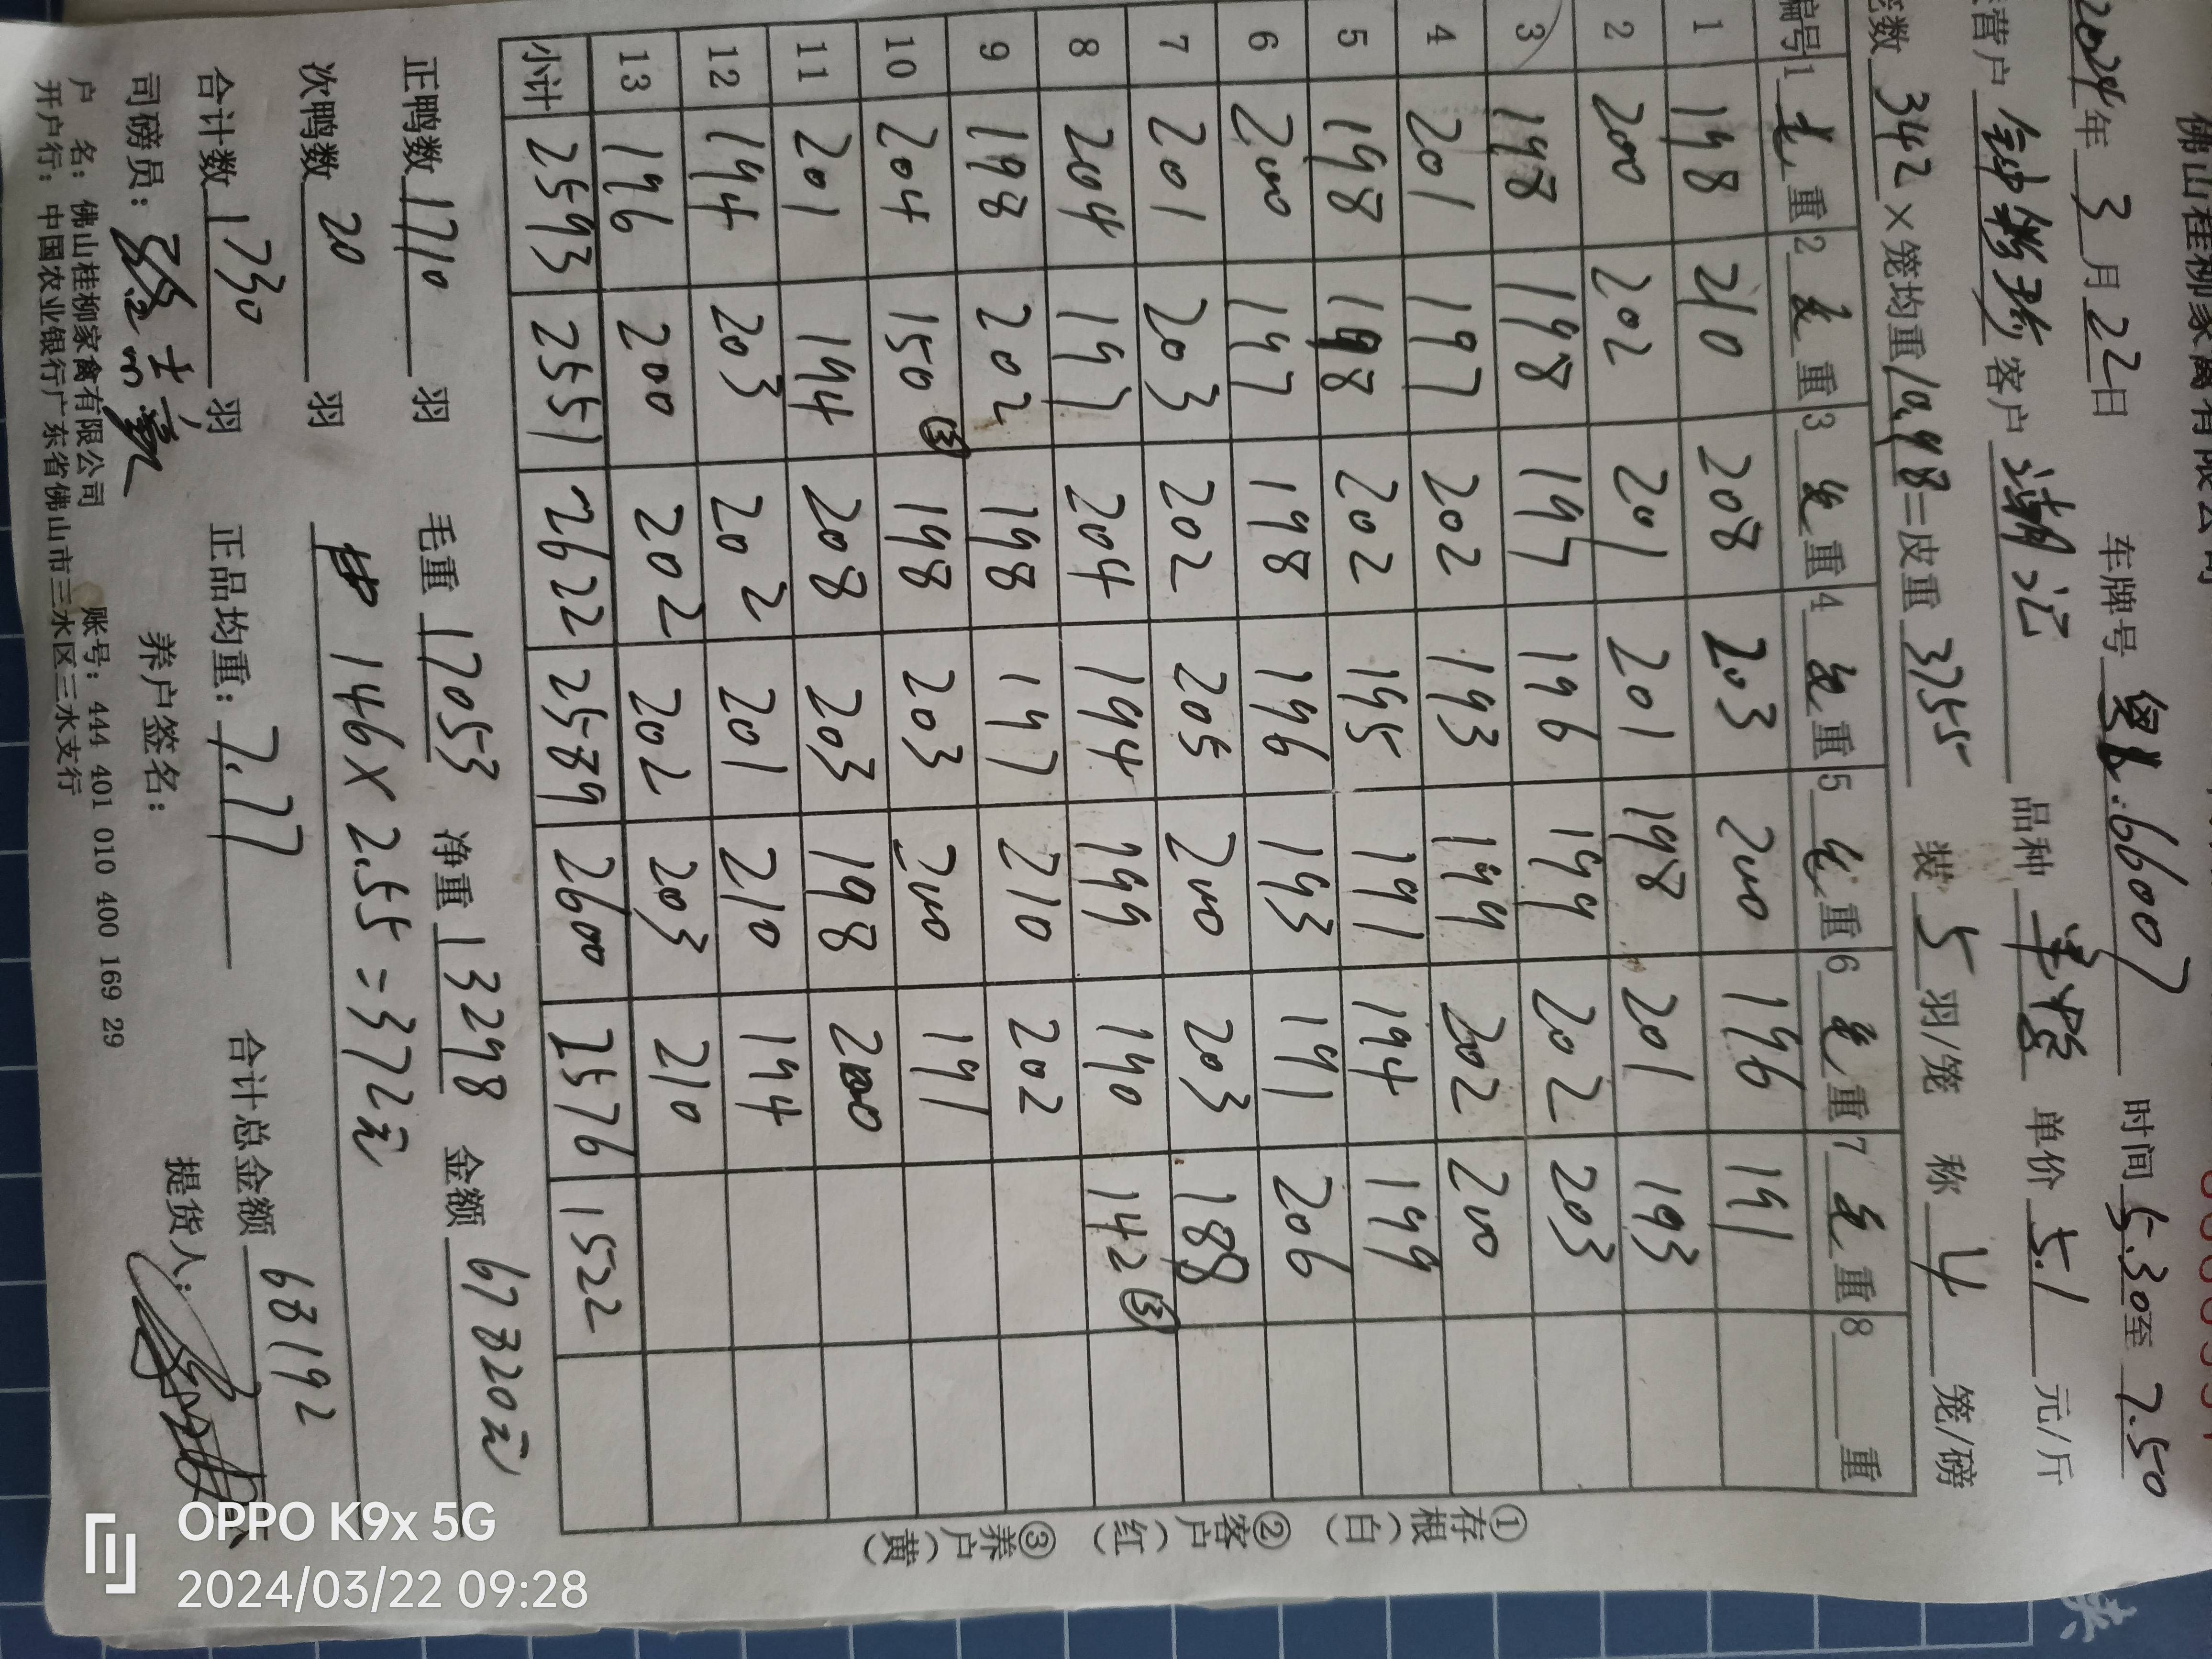 佛山桂柳家禽有限公司
2024年3月22日 车牌号 6607 时间5.30至7.50
营户 客户 湛江 品种 单价5.1元/斤
笼数342×笼均重10.98=皮重3755 装5羽/笼 称4笼/磅
编号 1毛重 2毛重 3毛重 4毛重 5毛重 6毛重 7毛重 8 重
1 198 210 208 203 200 196 191
2 200 202 201 201 198 201 193
3 198 198 197 196 199 202 203
4 201 197 202 193 199 202 200
5 198 198 202 195 191 194 199
6 200 197 198 196 193 191 206
7 201 203 202 205 200 203 188
8 204 197 204 194 199 190 142③
9 198 202 198 197 210 202
10 204 150③ 198 203 200 191
11 201 194 208 203 198 200
12 194 203 202 201 210 194
13 196 200 202 202 203 210
小计 2593 2551 2622 2589 2600 2576 1522
①存根(白) ②客户(红) ③养户(黄)
正鸭数1710羽 毛重17053 净重13298 金额67820元
次鸭数20羽 146×2.55=372元
合计数1730羽 正品均重:7.77 合计总金额68192
司磅员: 养户签名: 提货人:
户 名:佛山桂柳家禽有限公司 账号:444 401 010 400 169 29
开户行:中国农业银行广东省佛山市三水区三水支行
OPPO K9x 5G
2024/03/22 09:28